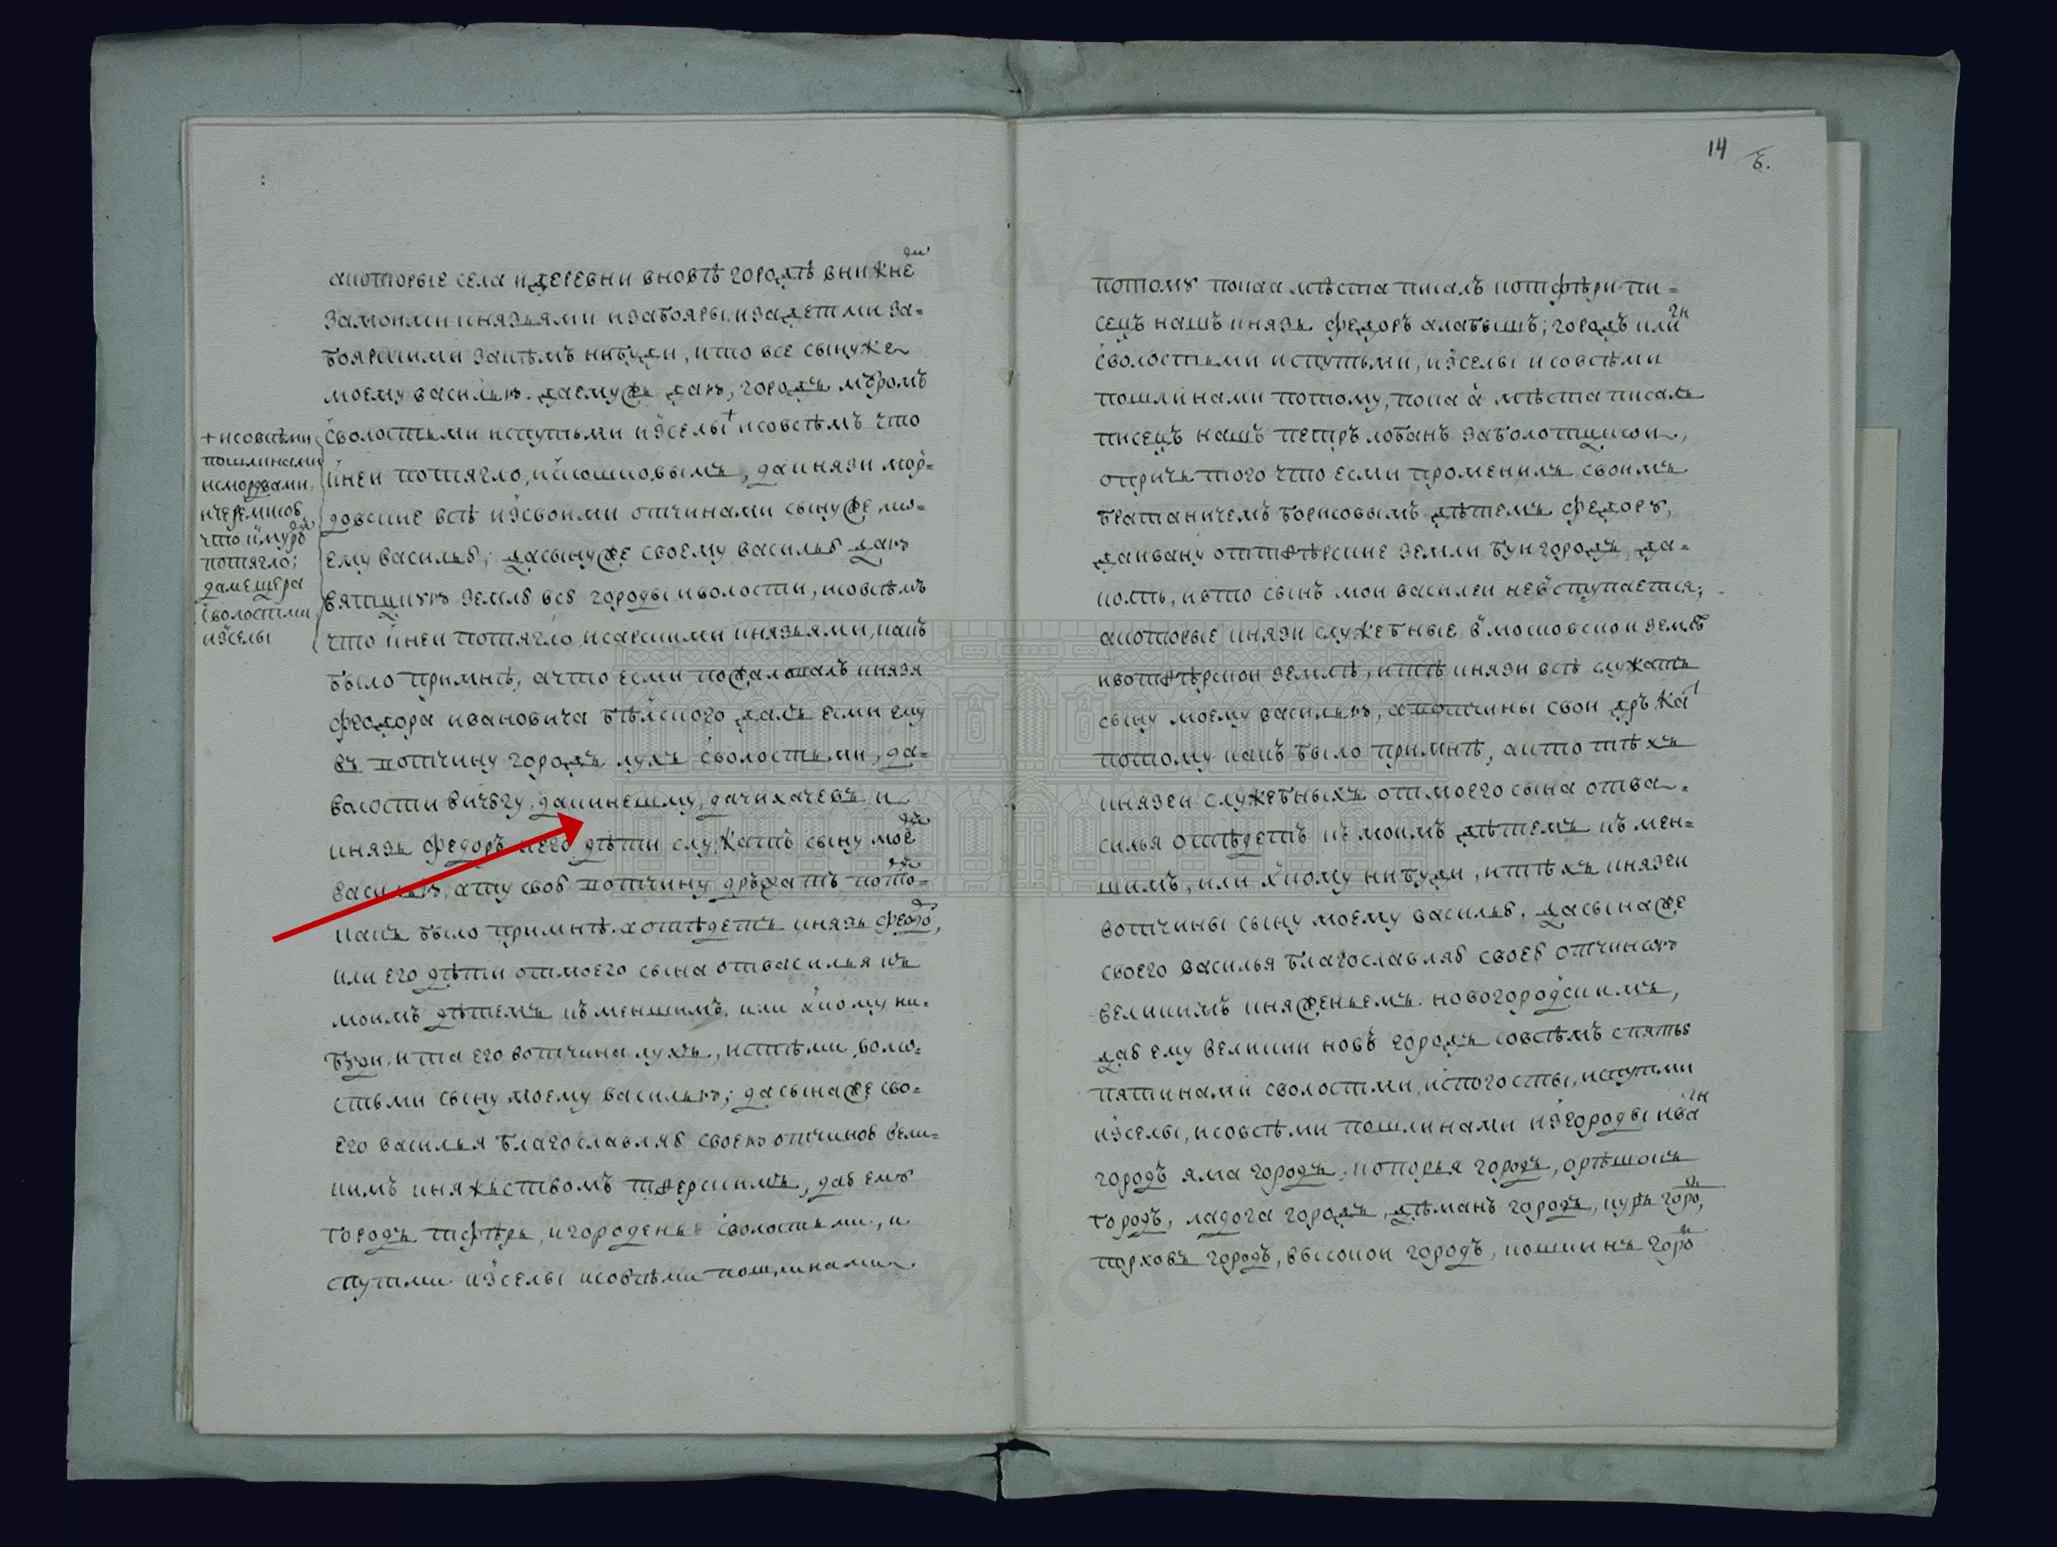 акоторые села и деревни вновѣ городѣ внижнеⷨ
замоими князьями изабояры, изадетми за-
боярскими закѣмъ нибуди, ито все сынуже
моему василью. даемужъ даю, городъ муромъ
сволостьми испутьми иизселы + исовсѣмъ что
кнеи потягло, икошковымъ, да князи мор-
довские всѣ изсвоими отчинами сынуже мо-
ему василью; дасынуже своему василью даю
вятцкую землю всю городы иволости, исовсѣмъ
что кнеи потягло, исарскими князьями, какъ
было примнѣ; ачто если пожаловалъ князя
феодора ивановича бѣлского далъ если ему
въ вотчину городъ лухъ сволостьми, да-
волости вичюгу, дакинешму, дачихачевъ, и
князь федоръ иего дѣти служатъ сыну моеⷨу
василью, ату свою вотчину држатъ потоⷨ-
какъ было примнѣ. хотѣдетъ князь федоⷬ,
или его дѣти отмоего сына отвасилья къ
моимъ дѣтемъ къменшимъ, или хкому ни-
буди, ита его вотчина лухъ, истѣми воло-
стьми сыну моему василью; дасынаже сво-
его василья благославляю своею отчиною вели-
кимъ княжьствомъ тверскимъ, даю ему
городъ тѳѣрь, игородень сволостьми, и
спутми изселы исовсѣми пошлинами.
+ исовсѣми
пошлинами
исмордвами,
ичеремисоⷨ
что кмуроⷨу
потягло;
дамещера
сволостми
изселы
14 б.
потому покаа мѣста писалъ котфѣри пи-
сецъ нашъ князь федоръ алабышъ; городъ клиⷩ
сволостьми испутьми, изселы исовсѣми
пошлинами потому, пока а мѣста писалъ
писецъ нашъ петръ лобанъ заболотцкои,
опричь того что если променилъ своимъ
братаничемъ борисовымъ дѣтемъ федору,
даивану оттвѣрские земли буигородъ, да-
колпь, ивто сынъ мои василеи невступается;
акоторые князи служебные вмосковскои землѣ
ивотвѣрскои землѣ, итѣ князи всѣ служатъ
сыну моему василью, авотчины свои држаⷮ
потому какъ было примнѣ, акто тѣхъ
князеи служебныхъ отмоего сына отва-
силья отъѣдетъ къ моимъ дѣтемъ къ мен-
шимъ, или хкому нибуди, итѣхъ князеи
вотчины сыну моему василью. дасынаже
своего василья благославляю своею отчиною
великимъ княженьемъ новогородскимъ,
даю ему великии новъ городъ совсѣмъ спятью
пятинами сволостми, испогосты, испутми
изселы, исовсѣми пошлинами изгороды иваⷩ
городъ яма городъ, копорья городъ, орѣшокъ
городъ, ладога городъ, дѣманъ городъ, куръ гороⷣ,
порховъ городъ, высокои городъ, кошкинъ гороⷣ